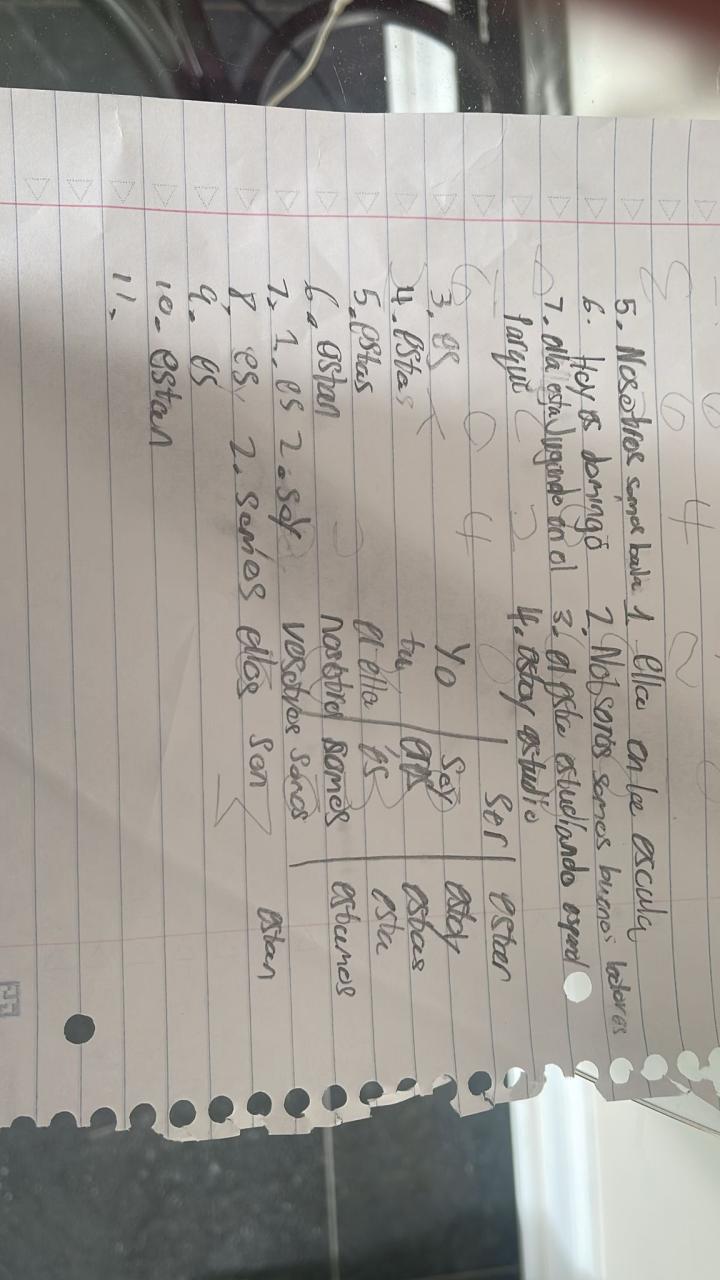 1 Ella en la escula
5. Nosotros somos baila 2. Notsoros somos buenos
6. Hoy es domingo 3. el esta estudiando
7. ella esta Jugando en el 4. estoy estudio
Parque
ser estar
3. es Yo soy estoy
4. estas tu eres estas
5. estas el ella es esta
6. estan nosotros somos estamos
7. 1. es 2. soy vosotros somos
8. es, 2. somos ellos son estan
9. es
10. estan
11.